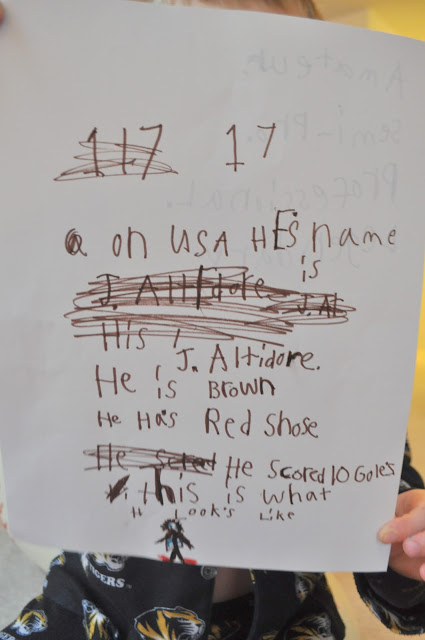 117 17
a on USA HE's name
is
J. Altidore J. At
His i
J. Altidore.
He is Brown
He Has Red Shose
He scored He scored 10 Gole's
this is what
H Look's Like
Amateur
Semi-Pro.
Professional.
TIGERS